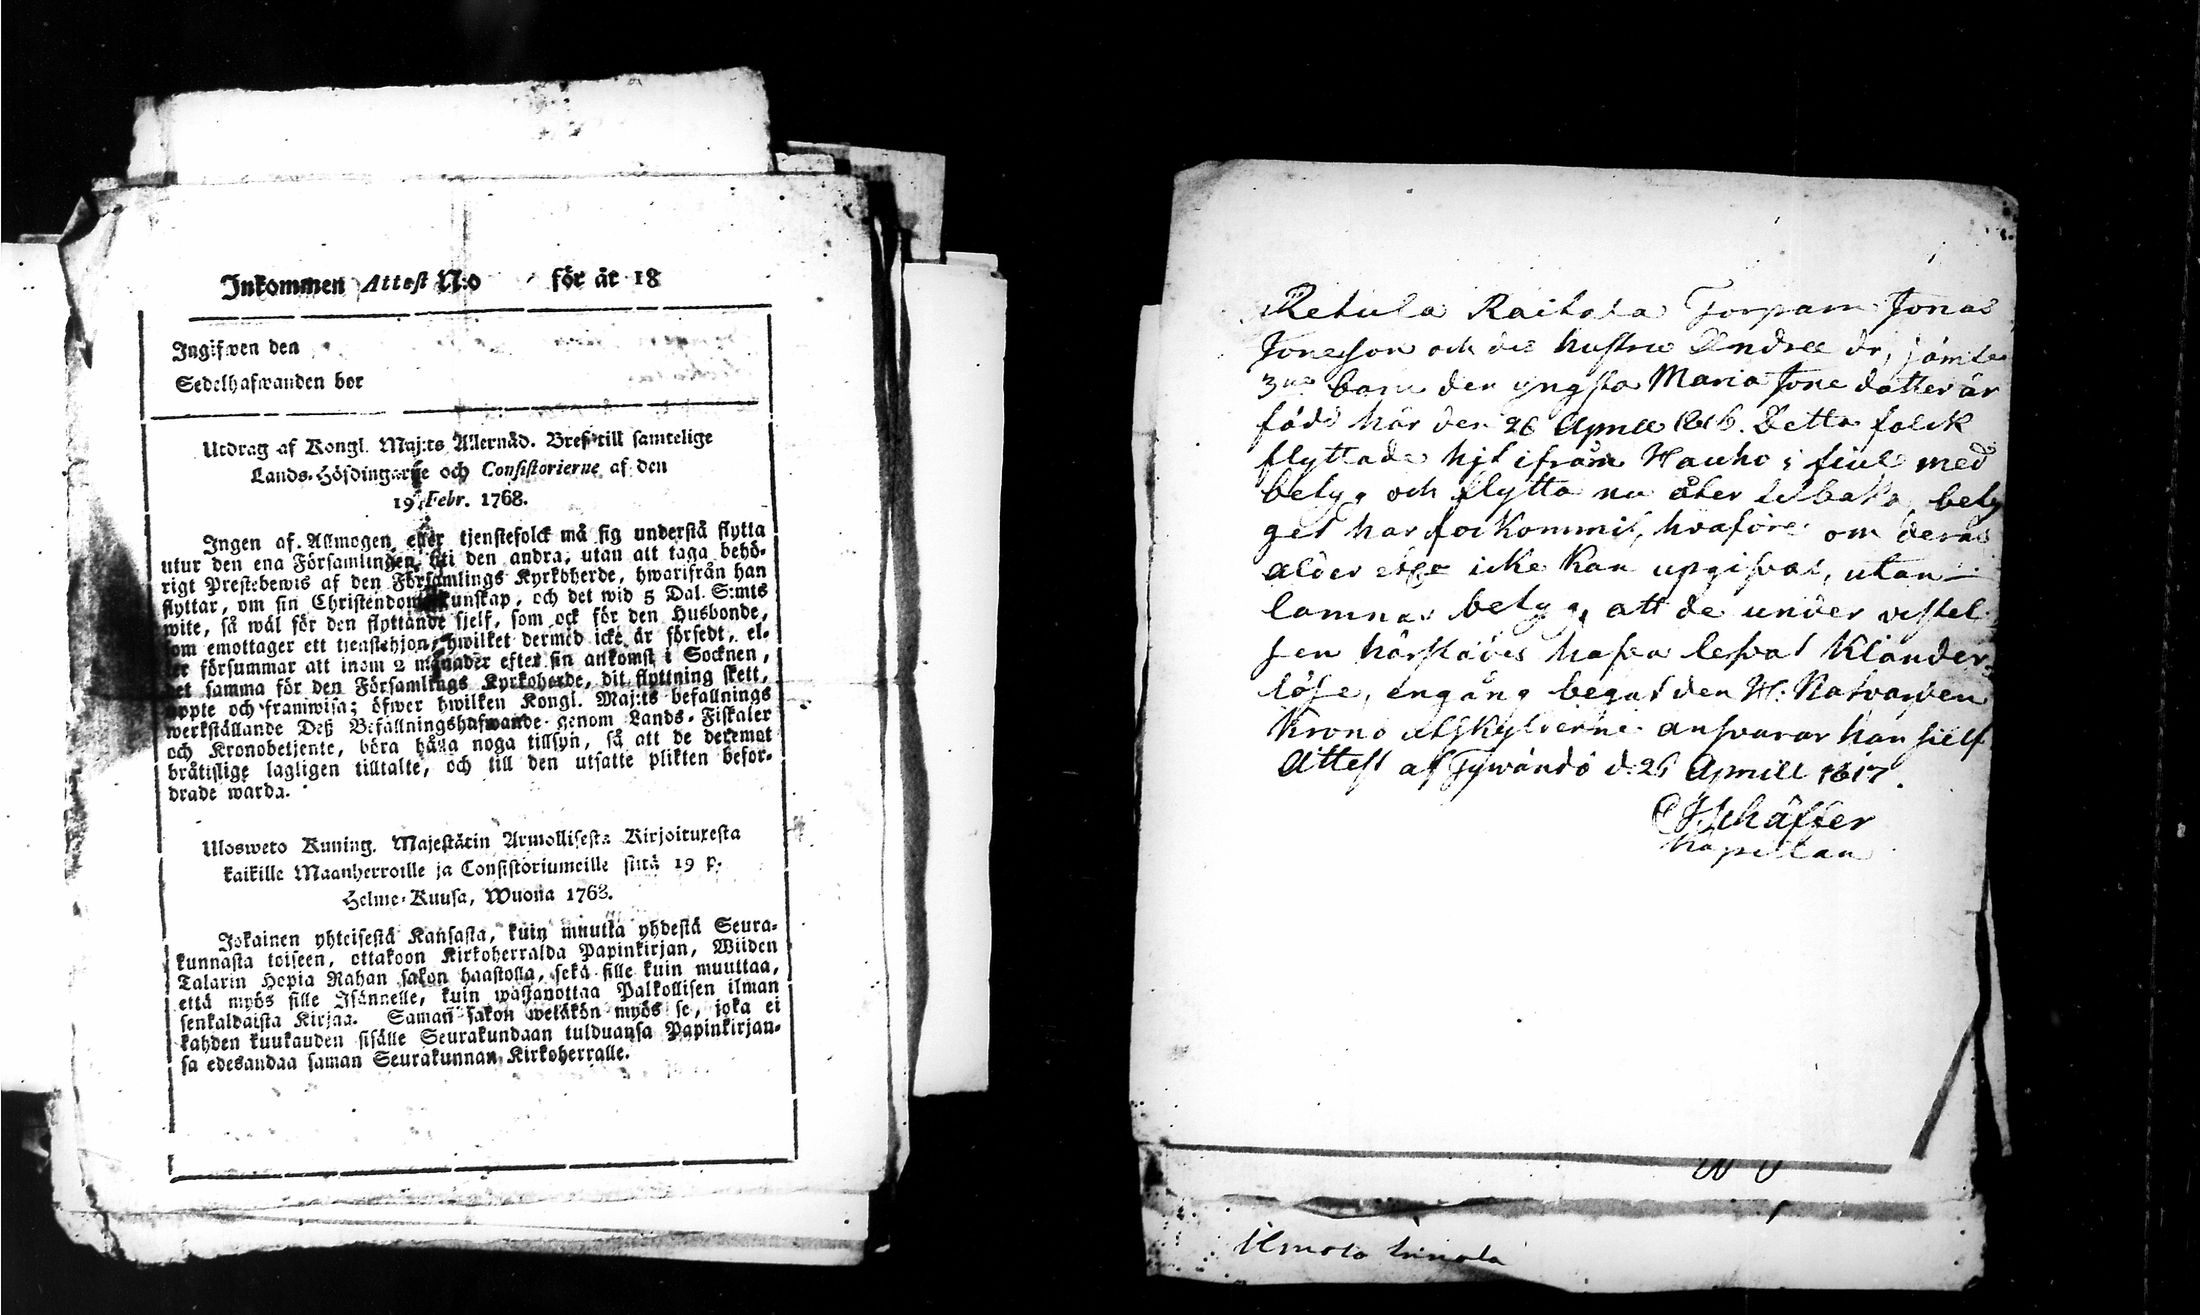 Inkommen Attest N:o för år 18
Ingifwen den
Sedelhafwanden bor
Utdrag af Kongl. Maj:ts Allernåd. Bref till samtelige
Lands-Höfdingarne och Consistorierne af den
19 Febr. 1768.
Ingen af Allmogen eller tjenstefolck må sig understå flytta
utur den ena Församlingen till den andra, utan att taga behö-
rigt Prestebewis af den Församlings Kyrkoherde, hwarifrån han
flyttar, om sin Christendoms kunskap, och det wid 5 Dal. S:mts
wite, så wäl för den flyttande sjelf, som ock för den Husbonde,
som emottager ett tjenstehjon, hwilket dermed icke är försedt, el-
ler försummar att inom 2 månader efter sin ankomst i Socknen,
det samma för den Församlings Kyrkoherde, dit flyttning skett,
uppte och framwisa; öfwer hwilken Kongl. Maj:ts befallnings
werkställande Deß Befallningshafwande genom Lands-Fiskaler
och Kronobetjente, böra hålla noga tillsyn, så att de deremot
bråtislige lagligen tilltalte, och till den utsatte plikten befor-
drade warda.
Ulosweto Kuning. Majestätin Armollisesta Kirjoituxesta
kaikille Maanherroille ja Consistoriumeille siitä 19 p.
Helme-Kuusa, Wuona 1768.
Jokainen yhteisestä Kansasta, kuin muutta yhdestä Seura-
kunnasta toiseen, ottakoon Kirkoherralda Papinkirjan, Wiiden
Talarin Hopia Rahan sakon haastolla, sekä sille kuin muuttaa,
että myös sille Isännelle, kuin wastanottaa Palkollisen ilman
senkaldaista Kirjaa. Saman sakon wetäkön myös se, joka ei
kahden kuukauden sisälle Seurakundaan tulduansa Papinkirjan-
sa edesandaa saman Seurakunnan Kirkoherralle.
Retula Raitala Torparn Jonas
Joneson och des hustru Andree dr, jämte
3ne barn den yngsta Maria Jone dotter är
född här den 26 Aprill 1816. Detta folck
flyttade hit ifrån Hauho med
betyg och flytta nu åter tilbaka, bety
get har förkommit, hvaföre om deras
ålder icke kan upgifvas, utan
lämnas betyg, att de under vistel
sen härstädes hafva lefvat klander
löse, engång begat den H. Natvarden
Krono utskylderne ansvarar han sielf
Attest af Tywändö d. 26 Aprill 1817.
Schäffer
Kapellan